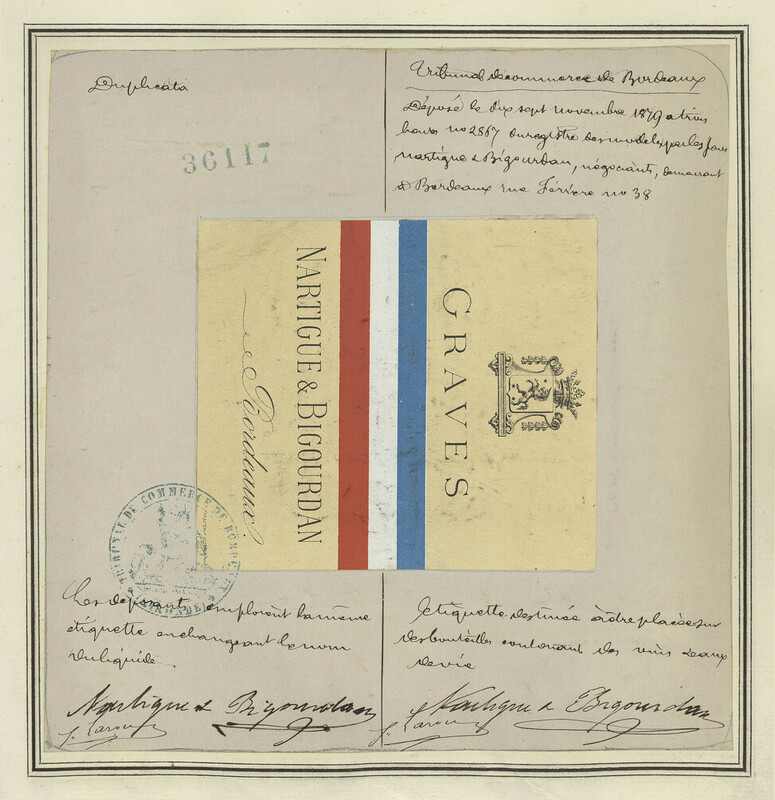 Duplicata
36117
Tribunal de commerce de Bordeaux
Déposé le dix sept novembre 1879 a trois
heures no 2867 du registre des modèles par les
Nartigue & Bigourdan, négociants, demeurant
à Bordeaux rue Férière no 38
GRAVES
NARTIGUE & BIGOURDAN
Bordeaux
TRIBUNAL DE COMMERCE DE BORDEAUX
(GIRONDE)
Les déposants emploient la même
étiquette en changeant le nom
du liquide
Nartigue & Bigourdan
Etiquette destinée à être placée sur
des bouteilles contenant des vins & eaux
de vie
Nartigue & Bigourdan